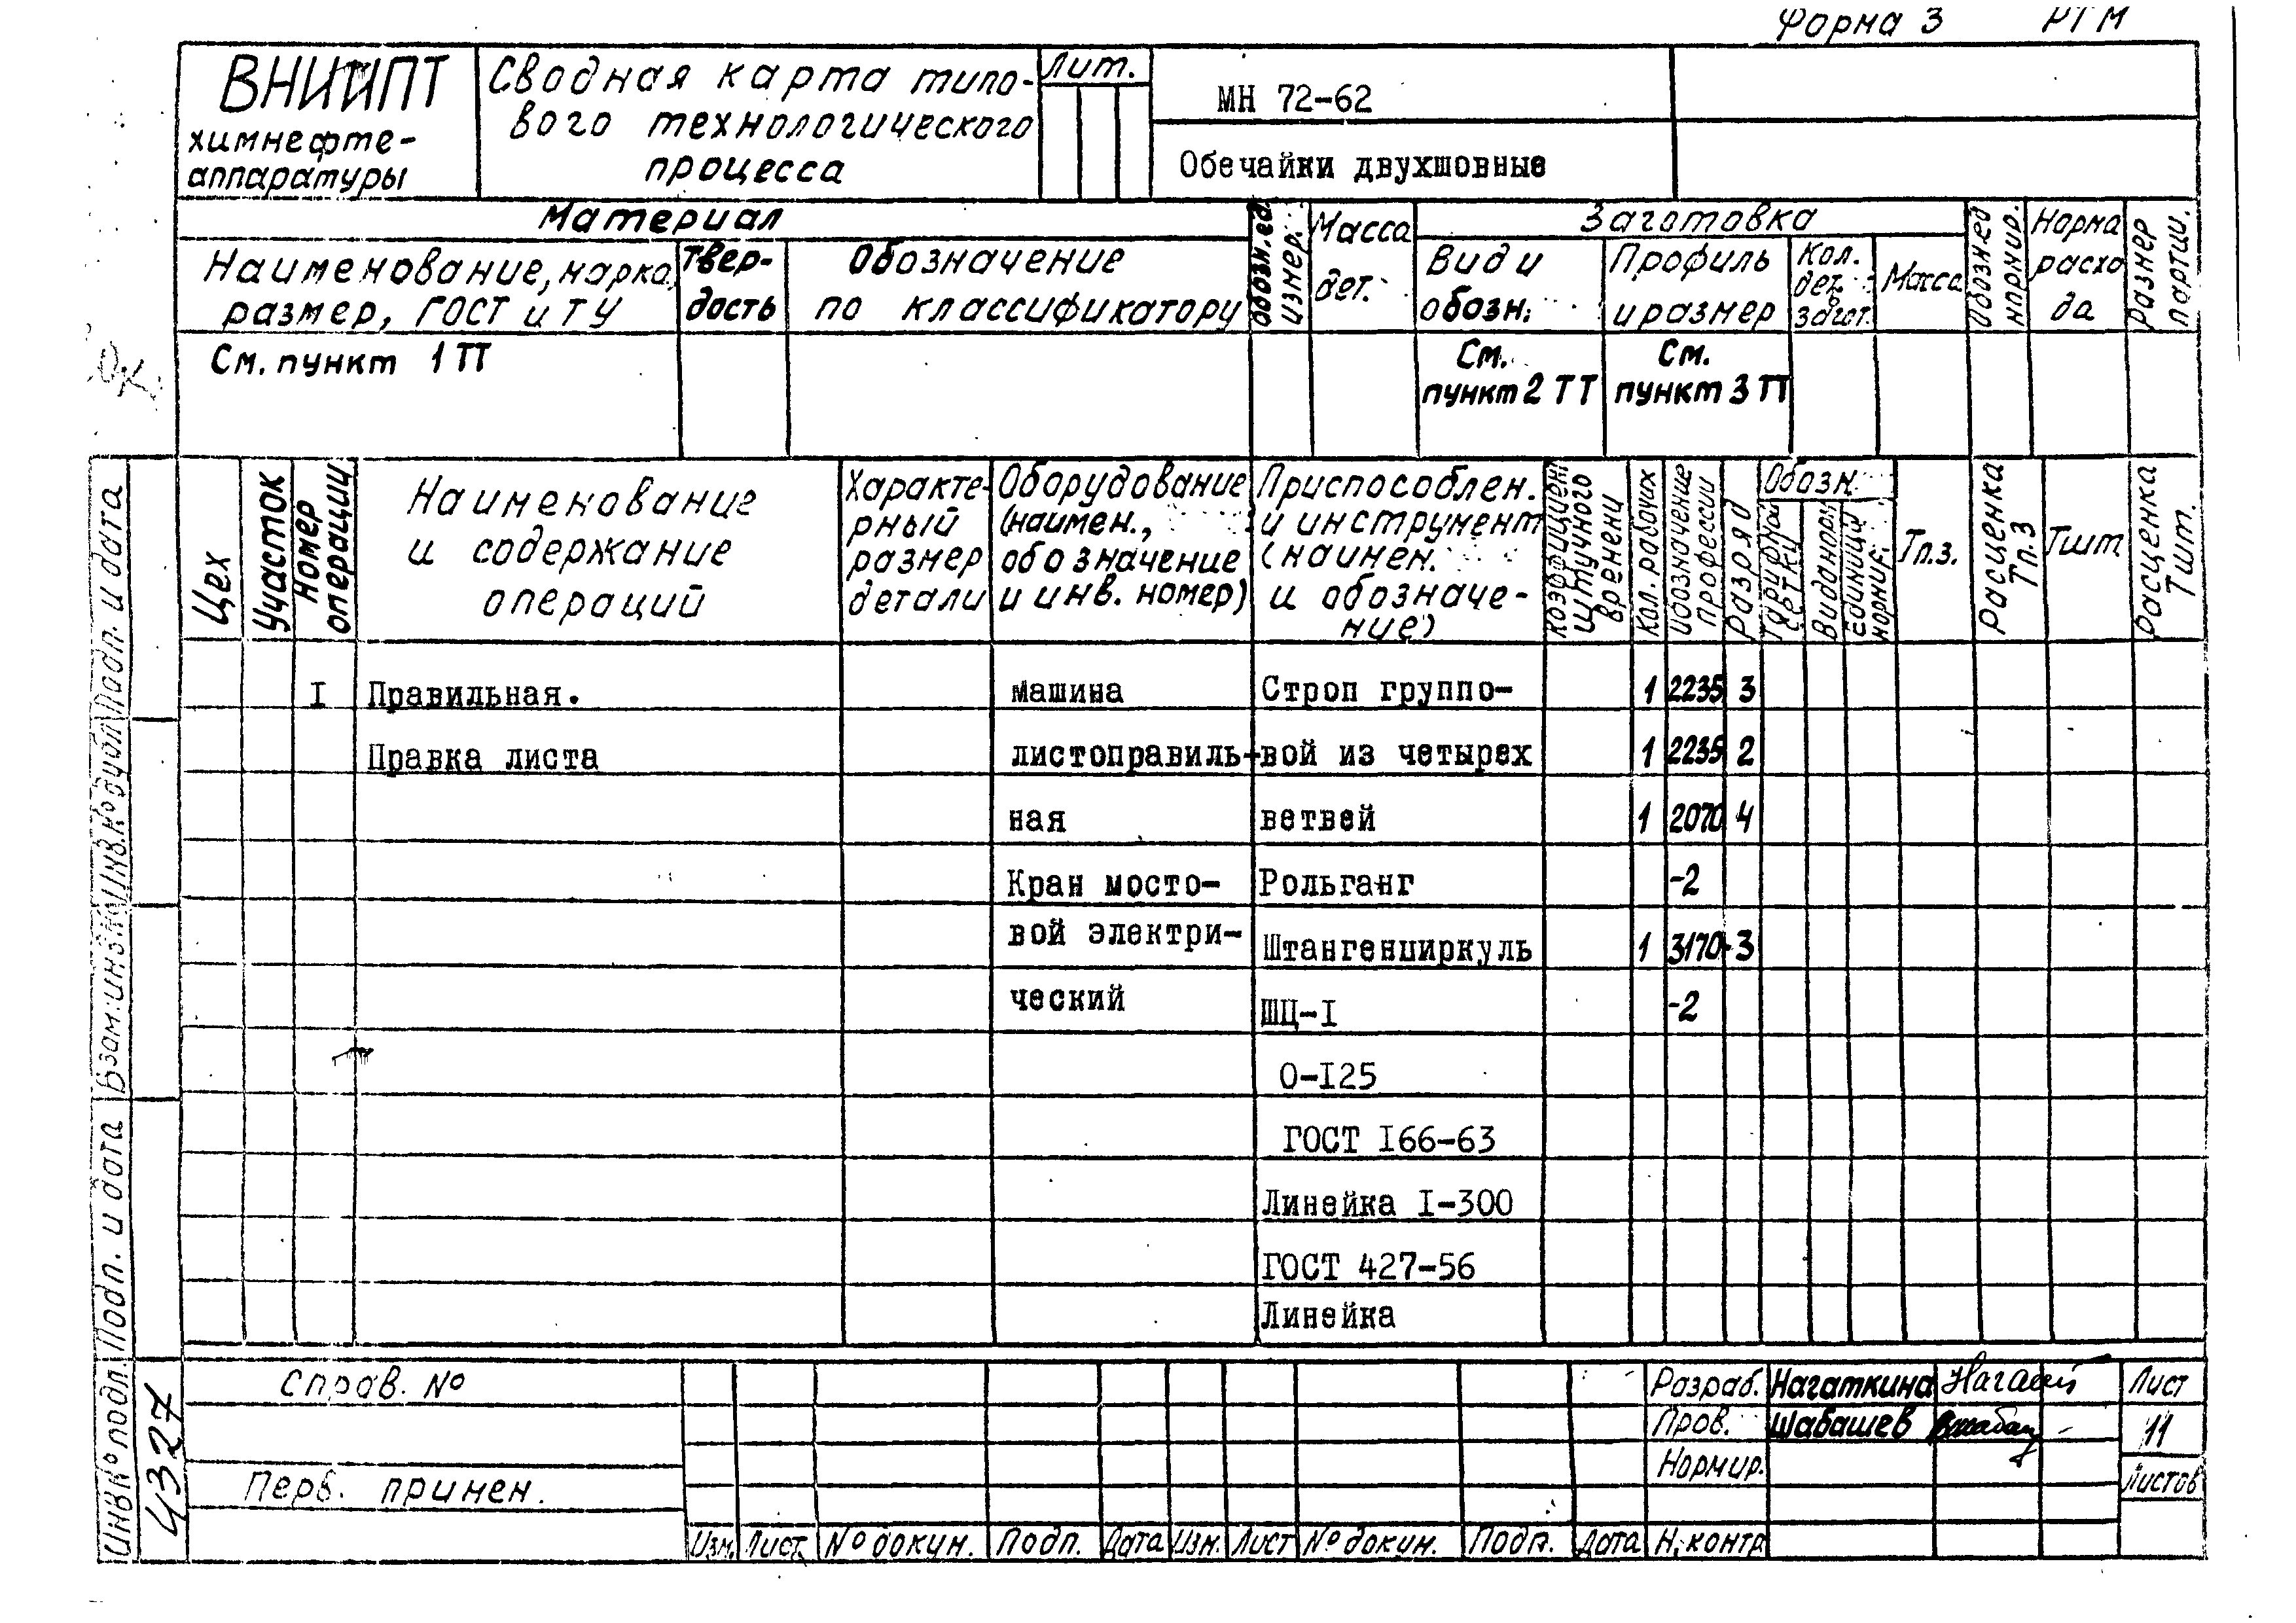 Форма 3 РТМ
ВНИИПТ
химнефте-
аппаратуры
Сводная карта типо-
вого технологического
процесса
Лит.
МН 72-62
Обечайки двухшовные
Материал
Наименование, марка,
размер, ГОСТ и ТУ
Твер-
дость
Обозначение
по классификатору
Обозн. ед.
измер.
Масса
дет.
Заготовка
Вид и
обозн.
Профиль
и размер
Кол.
дет. в
загот.
Масса
Обозн. ед
нормир.
Норма
расхо
да
Размер
партии.
См. пункт 1 ТТ
См.
пункт 2 ТТ
См.
пункт 3 ТТ
Цех
Участок
Номер
операции
Наименование
и содержание
операций
Характе-
рный
размер
детали
Оборудование
(наимен.,
обозначение
и инв. номер)
Приспособлен.
и инструмент
(наимен.
и обозначе-
ние)
Коэффициент
штучного
времени
Кол. рабочих
Обозначение
профессии
Разряд
Обозн.
Тарифной
сетки
Вида норм
Единицы
нормир.
Тп.з.
Расценка
Тп.з
Тшт
Расценка
Тшт.
I Правильная. машина Строп группо- 1 2235 3
Правка листа листоправиль- вой из четырех 1 2235 2
ная ветвей 1 2070 4
Кран мосто- Рольганг -2
вой электри- Штангенциркуль 1 3170-3
ческий ШЦ-I -2
0-I25
ГОСТ I66-63
Линейка I-300
ГОСТ 427-56
Линейка
Подп. и дата
Инв.№ дубл
Взам. инв.№
Подп. и дата
Инв № подл.
4327
Справ. №
Перв. примен.
Изм. Лист № докум. Подп. Дата Изм. Лист № докум. Подп. Дата
Разраб. Нагаткина
Пров. Шабашев
Нормир.
Н. контр
Лист
11
Листов